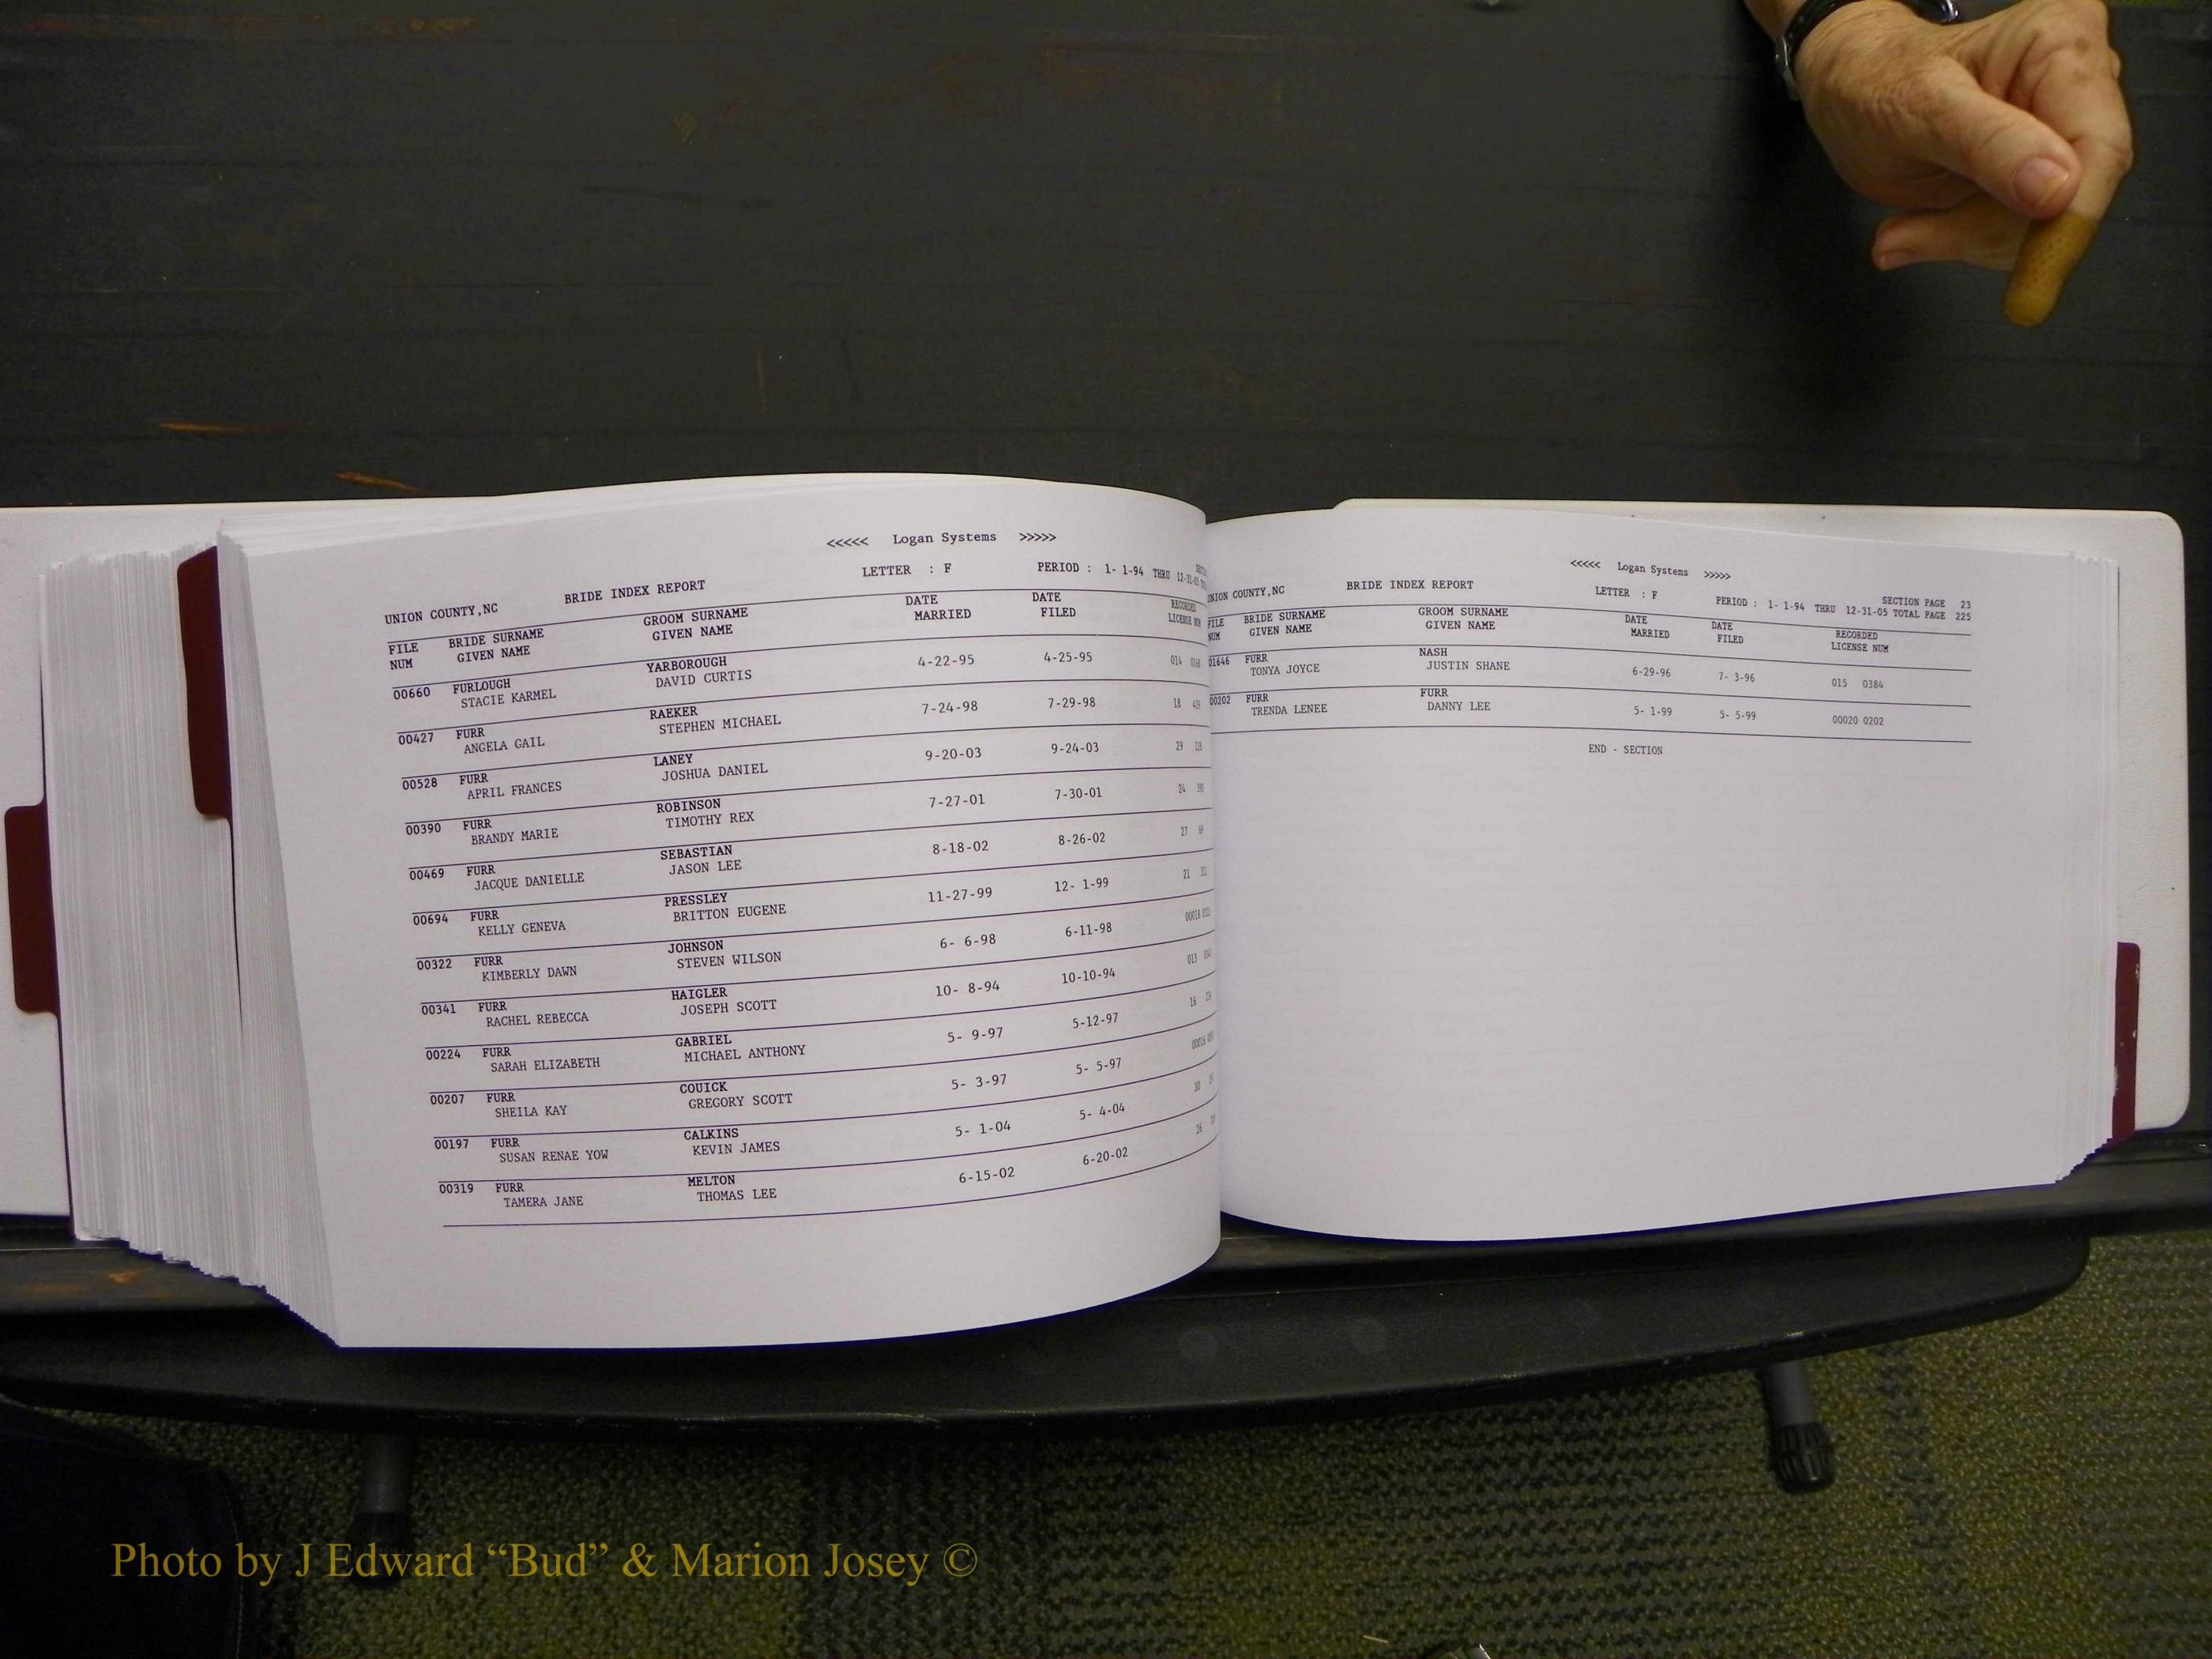 <<<<< Logan Systems >>>>>
UNION COUNTY,NC BRIDE INDEX REPORT LETTER : F PERIOD : 1- 1-94 THRU 12-31-05
FILE BRIDE SURNAME GROOM SURNAME DATE DATE RECORDED
NUM GIVEN NAME GIVEN NAME MARRIED FILED LICENSE NUM
00660 FURLOUGH YARBOROUGH 4-22-95 4-25-95 014
STACIE KARMEL DAVID CURTIS
00427 FURR RAEKER 7-24-98 7-29-98 18
ANGELA GAIL STEPHEN MICHAEL
00528 FURR LANEY 9-20-03 9-24-03 29
APRIL FRANCES JOSHUA DANIEL
00390 FURR ROBINSON 7-27-01 7-30-01 24
BRANDY MARIE TIMOTHY REX
00469 FURR SEBASTIAN 8-18-02 8-26-02 27
JACQUE DANIELLE JASON LEE
00694 FURR PRESSLEY 11-27-99 12- 1-99 21
KELLY GENEVA BRITTON EUGENE
00322 FURR JOHNSON 6- 6-98 6-11-98
KIMBERLY DAWN STEVEN WILSON
00341 FURR HAIGLER 10- 8-94 10-10-94 013
RACHEL REBECCA JOSEPH SCOTT
00224 FURR GABRIEL 5- 9-97 5-12-97 16
SARAH ELIZABETH MICHAEL ANTHONY
00207 FURR COUICK 5- 3-97 5- 5-97
SHEILA KAY GREGORY SCOTT
00197 FURR CALKINS 5- 1-04 5- 4-04 30
SUSAN RENAE YOW KEVIN JAMES
00319 FURR MELTON 6-15-02 6-20-02 26
TAMERA JANE THOMAS LEE
<<<<< Logan Systems >>>>>
SECTION PAGE 23
UNION COUNTY,NC BRIDE INDEX REPORT LETTER : F PERIOD : 1- 1-94 THRU 12-31-05 TOTAL PAGE 225
FILE BRIDE SURNAME GROOM SURNAME DATE DATE RECORDED
NUM GIVEN NAME GIVEN NAME MARRIED FILED LICENSE NUM
01646 FURR NASH 6-29-96 7- 3-96 015 0384
TONYA JOYCE JUSTIN SHANE
00202 FURR FURR 5- 1-99 5- 5-99 00020 0202
TRENDA LENEE DANNY LEE
END - SECTION
Photo by J Edward “Bud” & Marion Josey ©